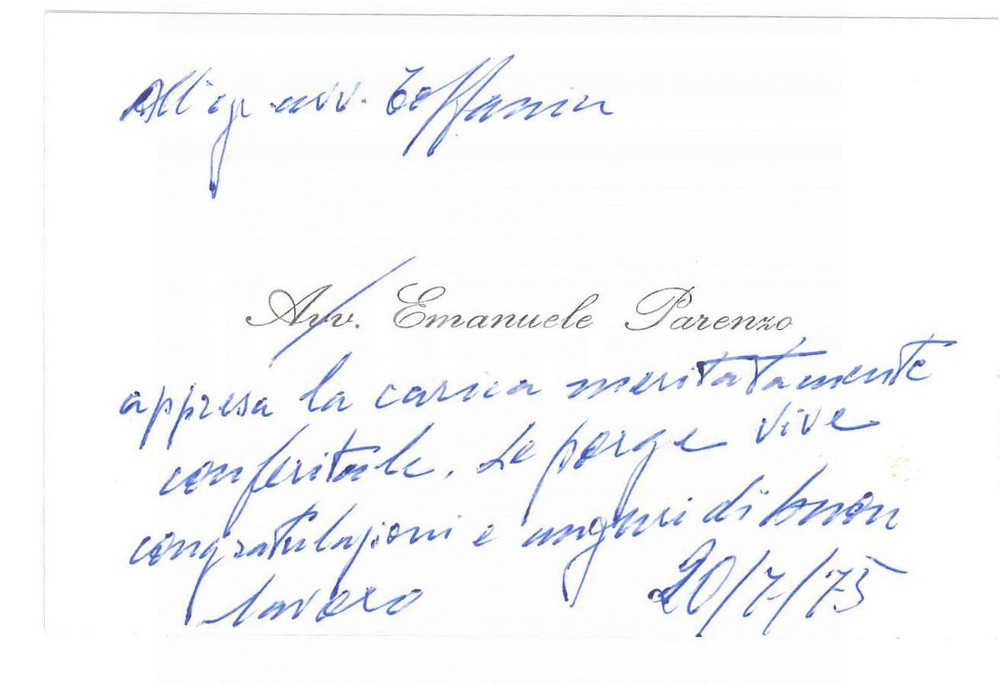 All'eg. avv. Toffanin
Avv. Emanuele Parenzo
appresa la carica meritatamente
conferitale, Le porge vive
congratulazioni e auguri di buon
lavoro 20/7/75